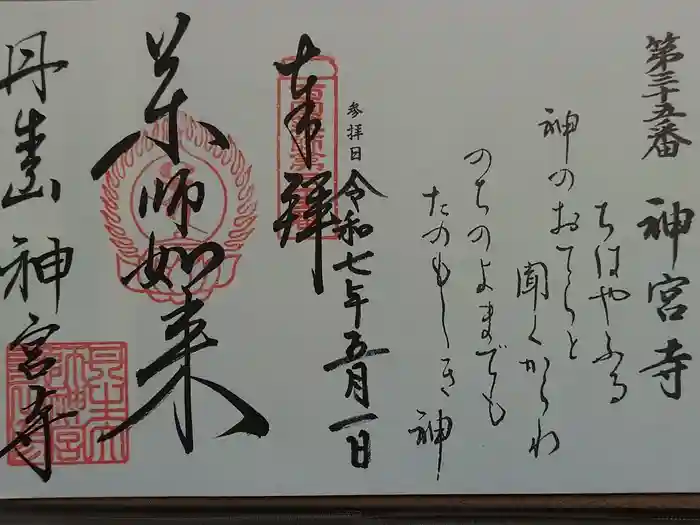 第三十五番 神宮寺
ちはやふる
神のおてらと
聞くからわ
のちのよまでも
たのもしき神
参拝日
令和七年五月一日
奉拝
薬師如来
丹生山 神宮寺